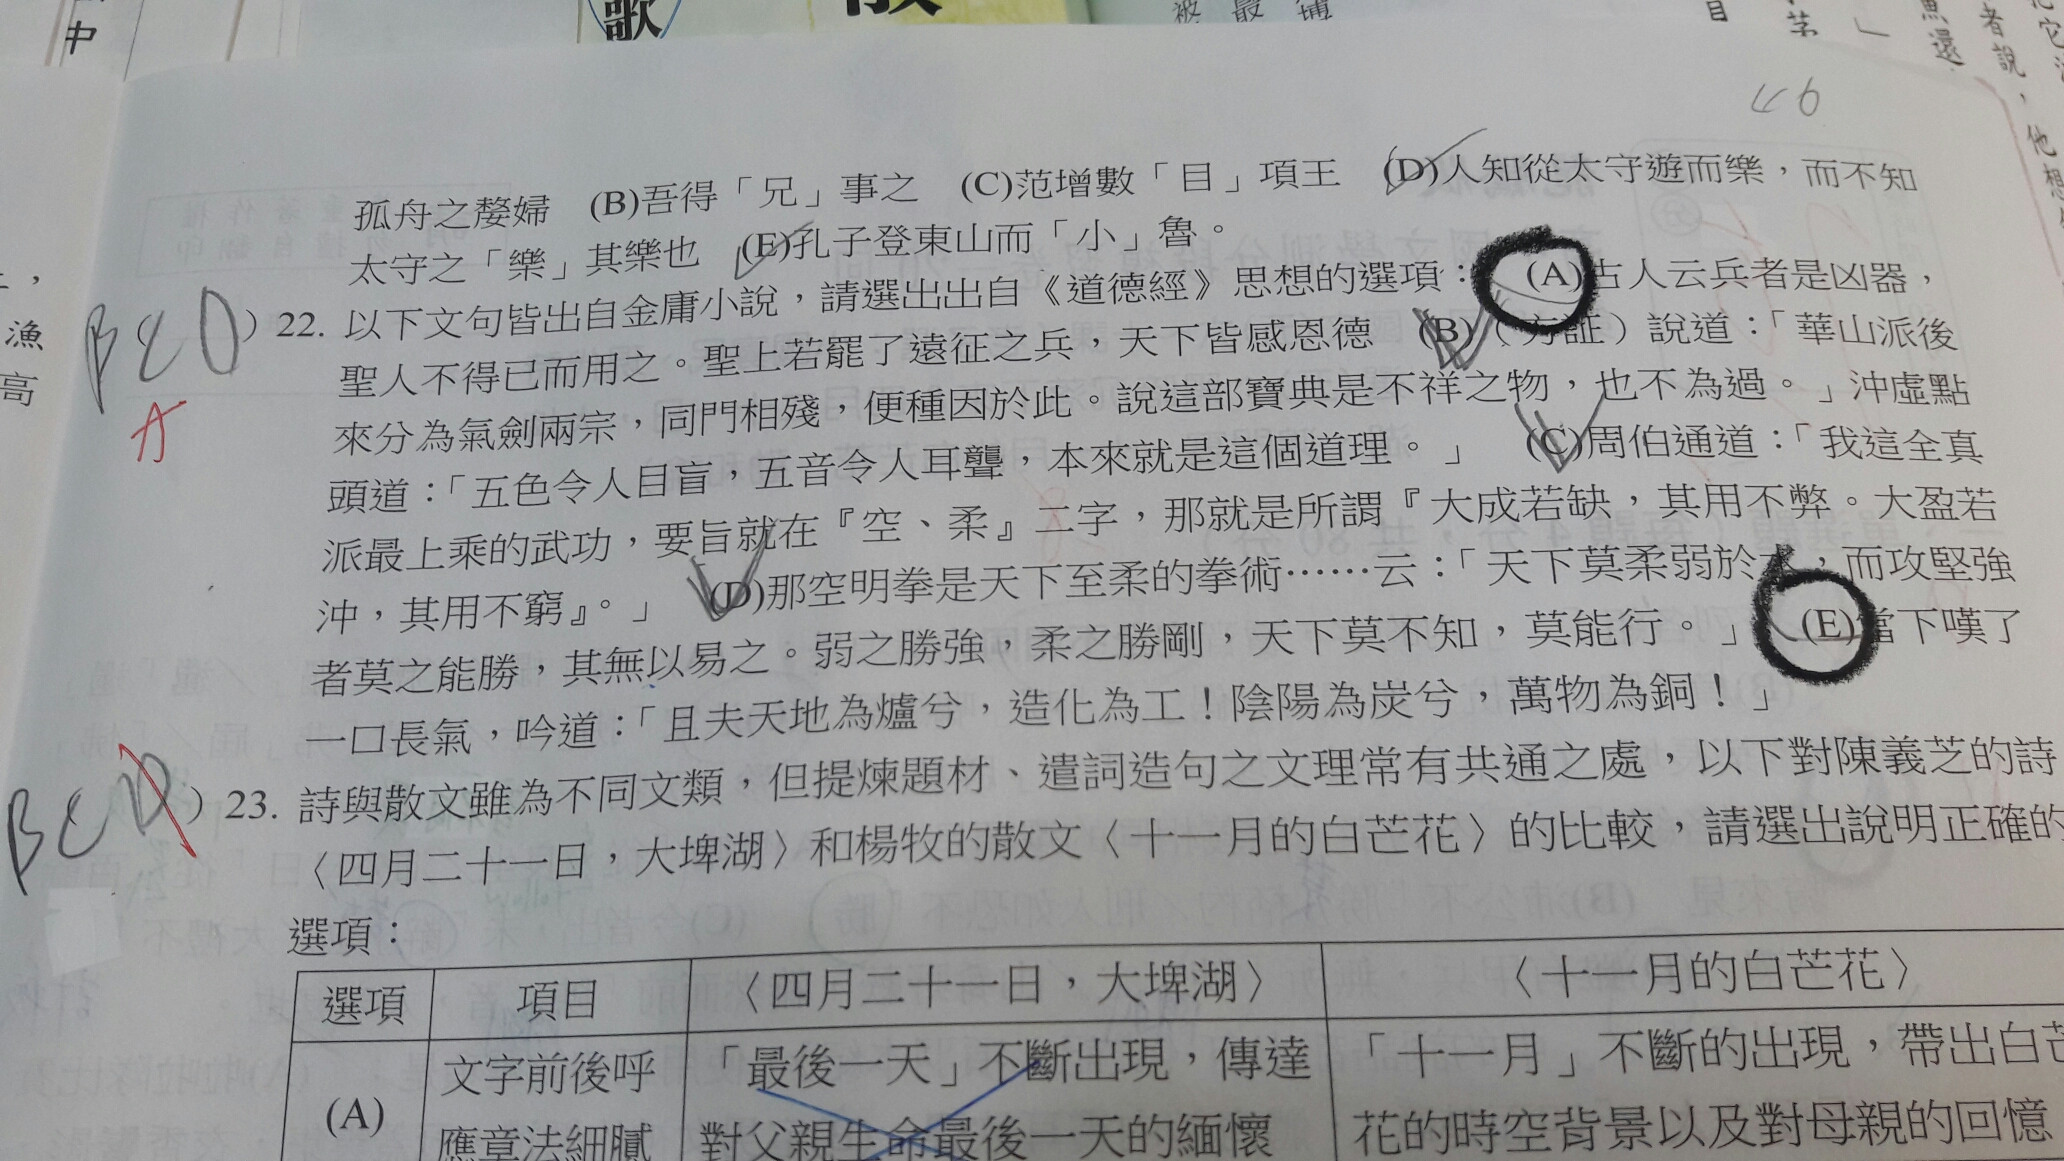 中
歌
散
被 最 捕
目
魚還
者說,他想
漁
高
孤舟之嫠婦 (B)吾得「兄」事之 (C)范增數「目」項王 (D)人知從太守遊而樂,而不知
太守之「樂」其樂也 (E)孔子登東山而「小」魯。
BCD
A
)22. 以下文句皆出自金庸小說,請選出出自《道德經》思想的選項: (A)古人云兵者是凶器,
聖人不得已而用之。聖上若罷了遠征之兵,天下皆感恩德 (B)(方証)說道:「華山派後
來分為氣劍兩宗,同門相殘,便種因於此。說這部寶典是不祥之物,也不為過。」沖虛點
頭道:「五色令人目盲,五音令人耳聾,本來就是這個道理。」 (C)周伯通道:「我這全真
派最上乘的武功,要旨就在『空、柔』二字,那就是所謂『大成若缺,其用不弊。大盈若
沖,其用不窮』。」 (D)那空明拳是天下至柔的拳術……云:「天下莫柔弱於水,而攻堅強
者莫之能勝,其無以易之。弱之勝強,柔之勝剛,天下莫不知,莫能行。」 (E)當下嘆了
一口長氣,吟道:「且夫天地為爐兮,造化為工!陰陽為炭兮,萬物為銅!」
BCD
)23. 詩與散文雖為不同文類,但提煉題材、遣詞造句之文理常有共通之處,以下對陳義芝的詩
〈四月二十一日,大埤湖〉和楊牧的散文〈十一月的白芒花〉的比較,請選出說明正確的
選項:
選項 項目 〈四月二十一日,大埤湖〉 〈十一月的白芒花〉
(A) 文字前後呼 「最後一天」不斷出現,傳達 「十一月」不斷的出現,帶出白芒
應章法細膩 對父親生命最後一天的緬懷 花的時空背景以及對母親的回憶